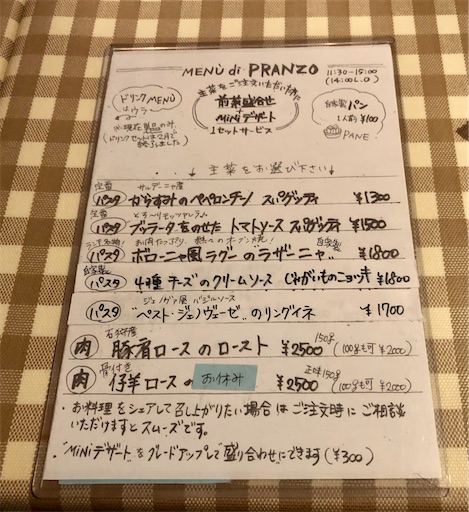 MENÙ di PRANZO
11:30-15:00
(14:00 L.O)
主菜をご注文いただいた方に
前菜盛合せ
+
MiNiデザート
1セットサービス
ドリンクMENÙ
はウラ
※現在単品のみ
(ドリンクセットは2月で
終了しました)
自家製パン
1人前¥100
PANE
↓ 主菜をお選び下さい ↓
定番 サルデーニャ産
パスタ からすみのペペロンチーノ スパゲッティ ¥1300
定番 とろ〜りモッツァレラ
パスタ ブッラータをのせた トマトソース スパゲッティ ¥1500
お肉たっぷり 熱々のオーブン焼! 自家製
パスタ ボローニャ風ラグーの"ラザーニャ" ¥1800
自家製
パスタ 4種チーズのクリームソース じゃがいものニョッキ ¥1800
ジェノヴァ風 バジルソース
パスタ "ペスト・ジェノヴェーゼ"のリングイネ ¥1700
肉 豚肩ロースのロースト ¥2500 150g (100gも可 ¥2000)
骨付き 正味150g
肉 仔羊ロースの お休み ¥2500 (100gも可 ¥2000)
・お料理をシェアして召し上がりたい場合はご注文時にご相談
いただけますとスムーズです。
・"MiNiデザート"をグレードアップして"盛り合わせ"にできます(¥300)